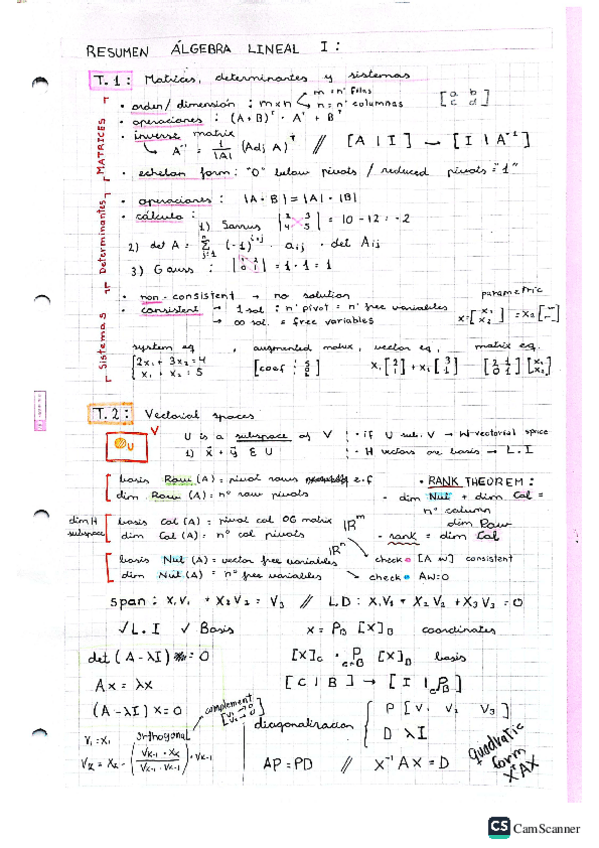 RESUMEN ÁLGEBRA LINEAL I:
T.1: Matrices, determinantes y sistemas
MATRICES
• orden/dimensión: m×n
m = nº filas
n = nº columnas
[a b
c d]
• operaciones: (A+B)ᵀ = Aᵀ + Bᵀ
• inverse matrix
↳ A⁻¹ = 1/|A| (Adj A)ᵀ // [A | I] → [I | A⁻¹]
• echelon form: "0" below pivots / reduced pivots = "1"
Determinantes
• operaciones: |A·B| = |A|·|B|
• cálculo:
1) Sarrus |2 3
4 5| = 10 - 12 = -2
2) det A = Σ (-1)^(i+j) · aij · det Aij
j=1
3) Gauss: |1 2
0 1| = 1·1 = 1
Sistemas
• non-consistent → no solution
• consistent → 1 sol: nº pivot = nº free variables
→ ∞ sol. = free variables
parametric
x = [x₁
x₂] = x₂ [ ]
system eq, augmented matrix, vector eq, matrix eq.
{2x₁ + 3x₂ = 4
x₁ + x₂ = 5
[coef ]
x₁ [2
1] + x₂ [3
1]
[x₁
x₂]
T.2: Vectorial spaces
V
U
U is a subspace of V
1) x⃗ + y⃗ ∈ U
• if U sub. V → W vectorial space
- H vectors are basis → L.I
basis Row (A) = pivot rows e.f
dim Row (A) = nº row pivots
• RANK THEOREM:
- dim Nul + dim Col =
nº column
dim Row
- rank = dim Col
dim H
subspace
basis Col (A) = pivot col OG matrix ℝᵐ
dim Col (A) = nº col pivots
basis Nul (A) = vector free variables ℝⁿ
dim Nul (A) = nº free variables
check • [A w] consistent
check • Aw=0
span: X₁V₁ + X₂V₂ = V₃ // L.D: X₁V₁ + X₂V₂ + X₃V₃ = 0
✓L.I ✓Basis x = P_B [X]_B coordinates
det (A - λI) = 0 [X]_C = P_C←B [X]_B basis
Ax = λx [C | B] → [I | P_C←B]
(A - λI) x = 0
complement
orthogonal
V₁ = X₁
V_K = X_K - (V_K-1 · X_K / V_K-1 · V_K-1) · V_K-1
diagonalizacion
P [V₁ V₂ V₃]
D λI
AP = PD // X⁻¹AX = D
quadratic
form
XᵀAX
CS CamScanner